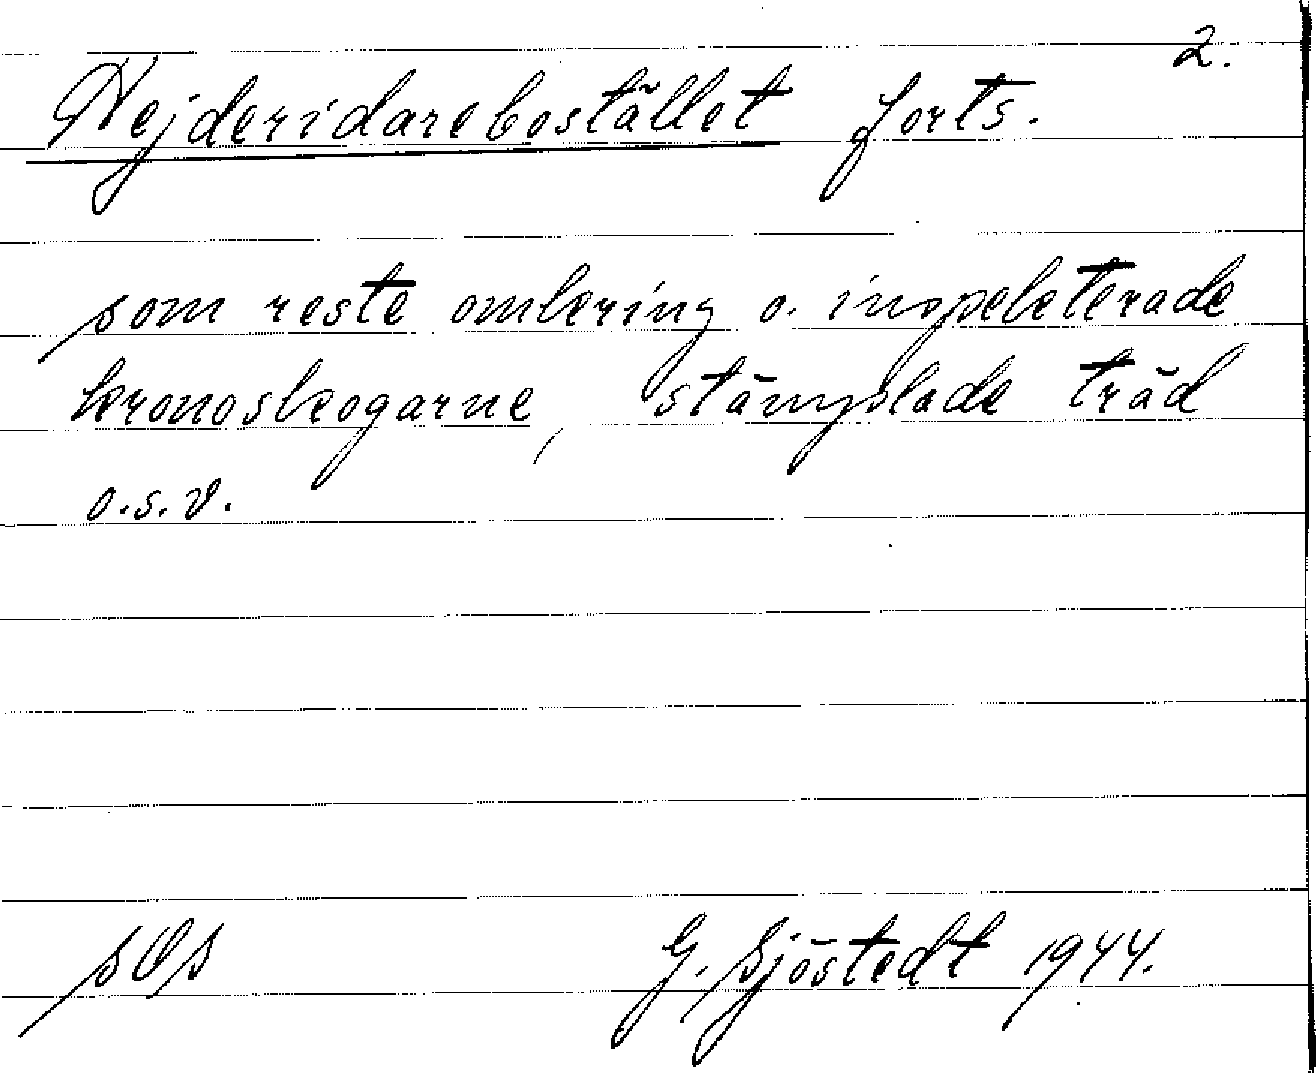 2.
Hejderidarebostället forts.
som reste omkring o. inspekterade
kronoskogarne, stämplade träd
o.s.v.
sOs G. Sjöstedt 1944.